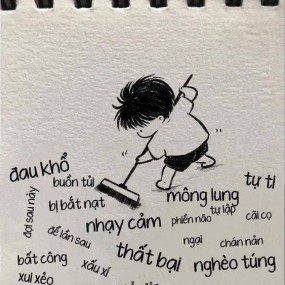 đau khổ
buồn tủi
tự ti
mông lung
bị bắt nạt
tự lập
đợi sau này
phiền não
cãi cọ
nhạy cảm
để lần sau
ngại
chán nản
thất bại
bất công
xấu xí
nghèo túng
xui xẻo